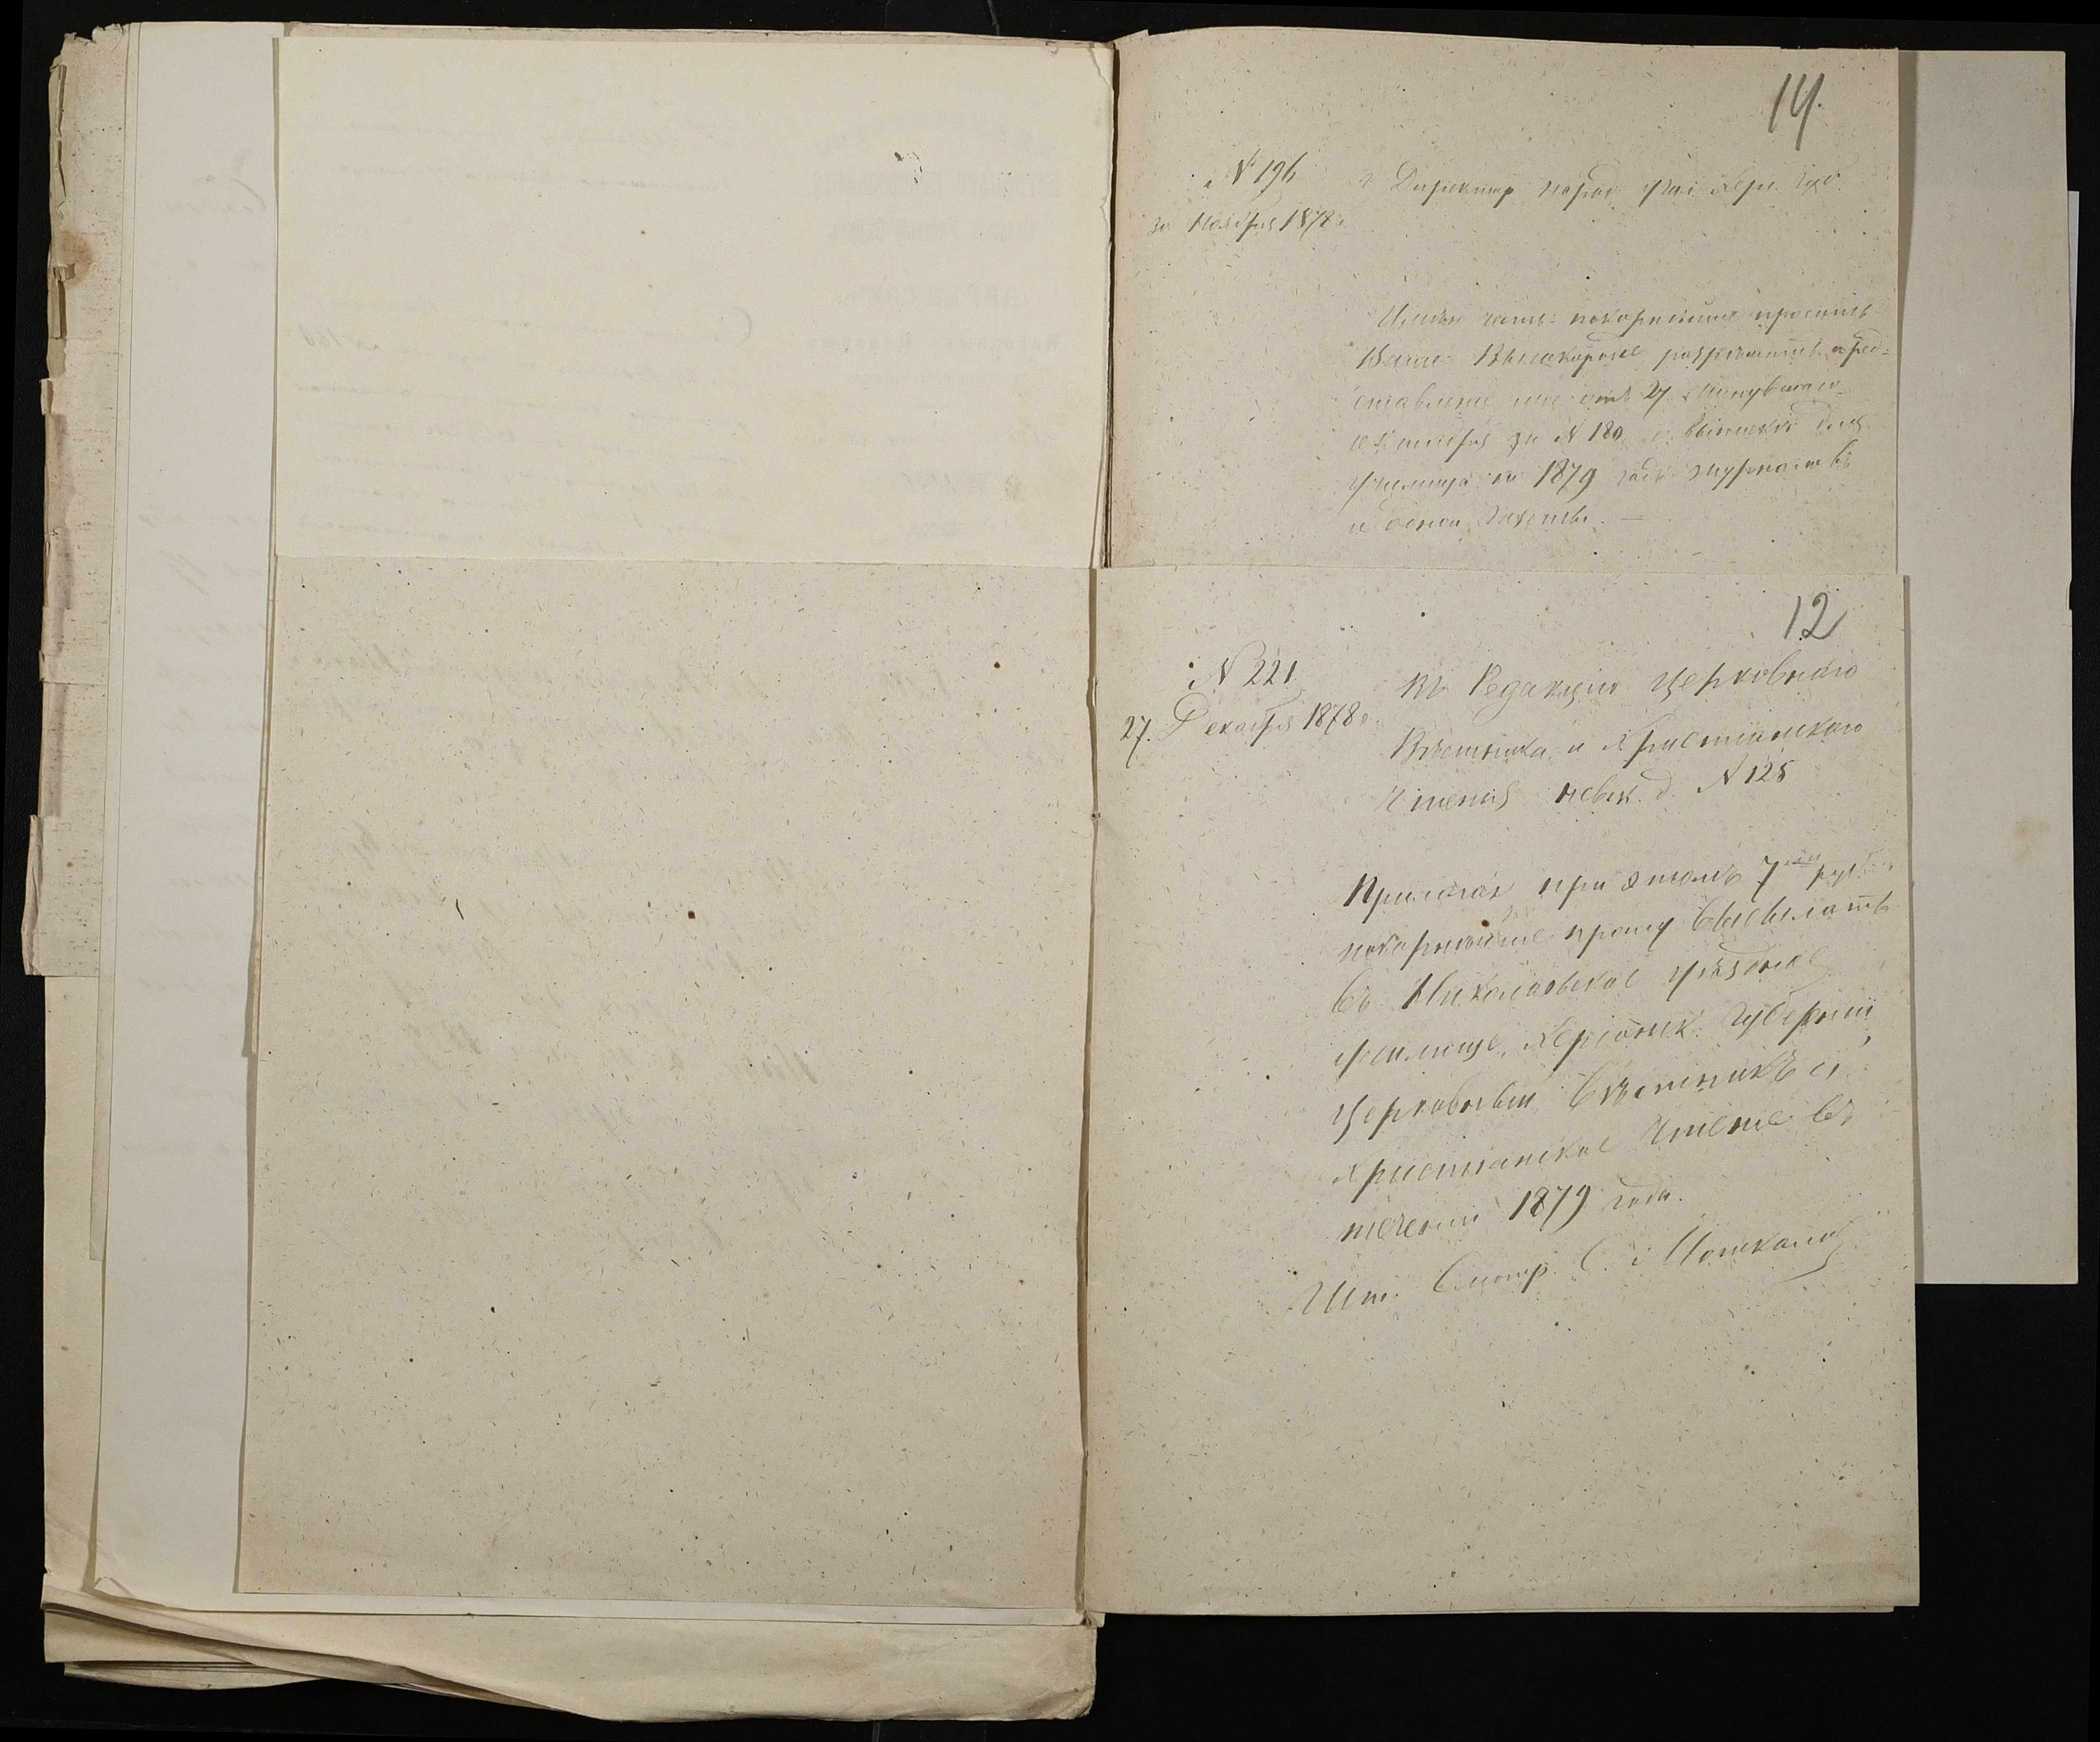 14.
№ 196
30 Ноября 1878 г.
Г. Директор народ. учил. Херс. губ.
Имею честь покорнейше просить
Ваше Высокородіе разрешить пред-
ставленіе мое отъ 27 минувшаго
октября за № 180 о выписке для
училища въ 1879 году журналовъ
и одной газеты. —
12
№ 221
27. Декабря 1878 г.
Въ Редакцію Церковнаго
Вѣстника и Христіанскаго
Чтенія Невск. д. № 125
Прилагая при этомъ 7 руб.
покорнейше прошу высылать
въ Николаевское уѣздное
училище, Херсонск. губерніи,
Церковный Вѣстникъ и
Христіанское Чтеніе въ
теченіи 1879 года.
Шт. Смотр. С.